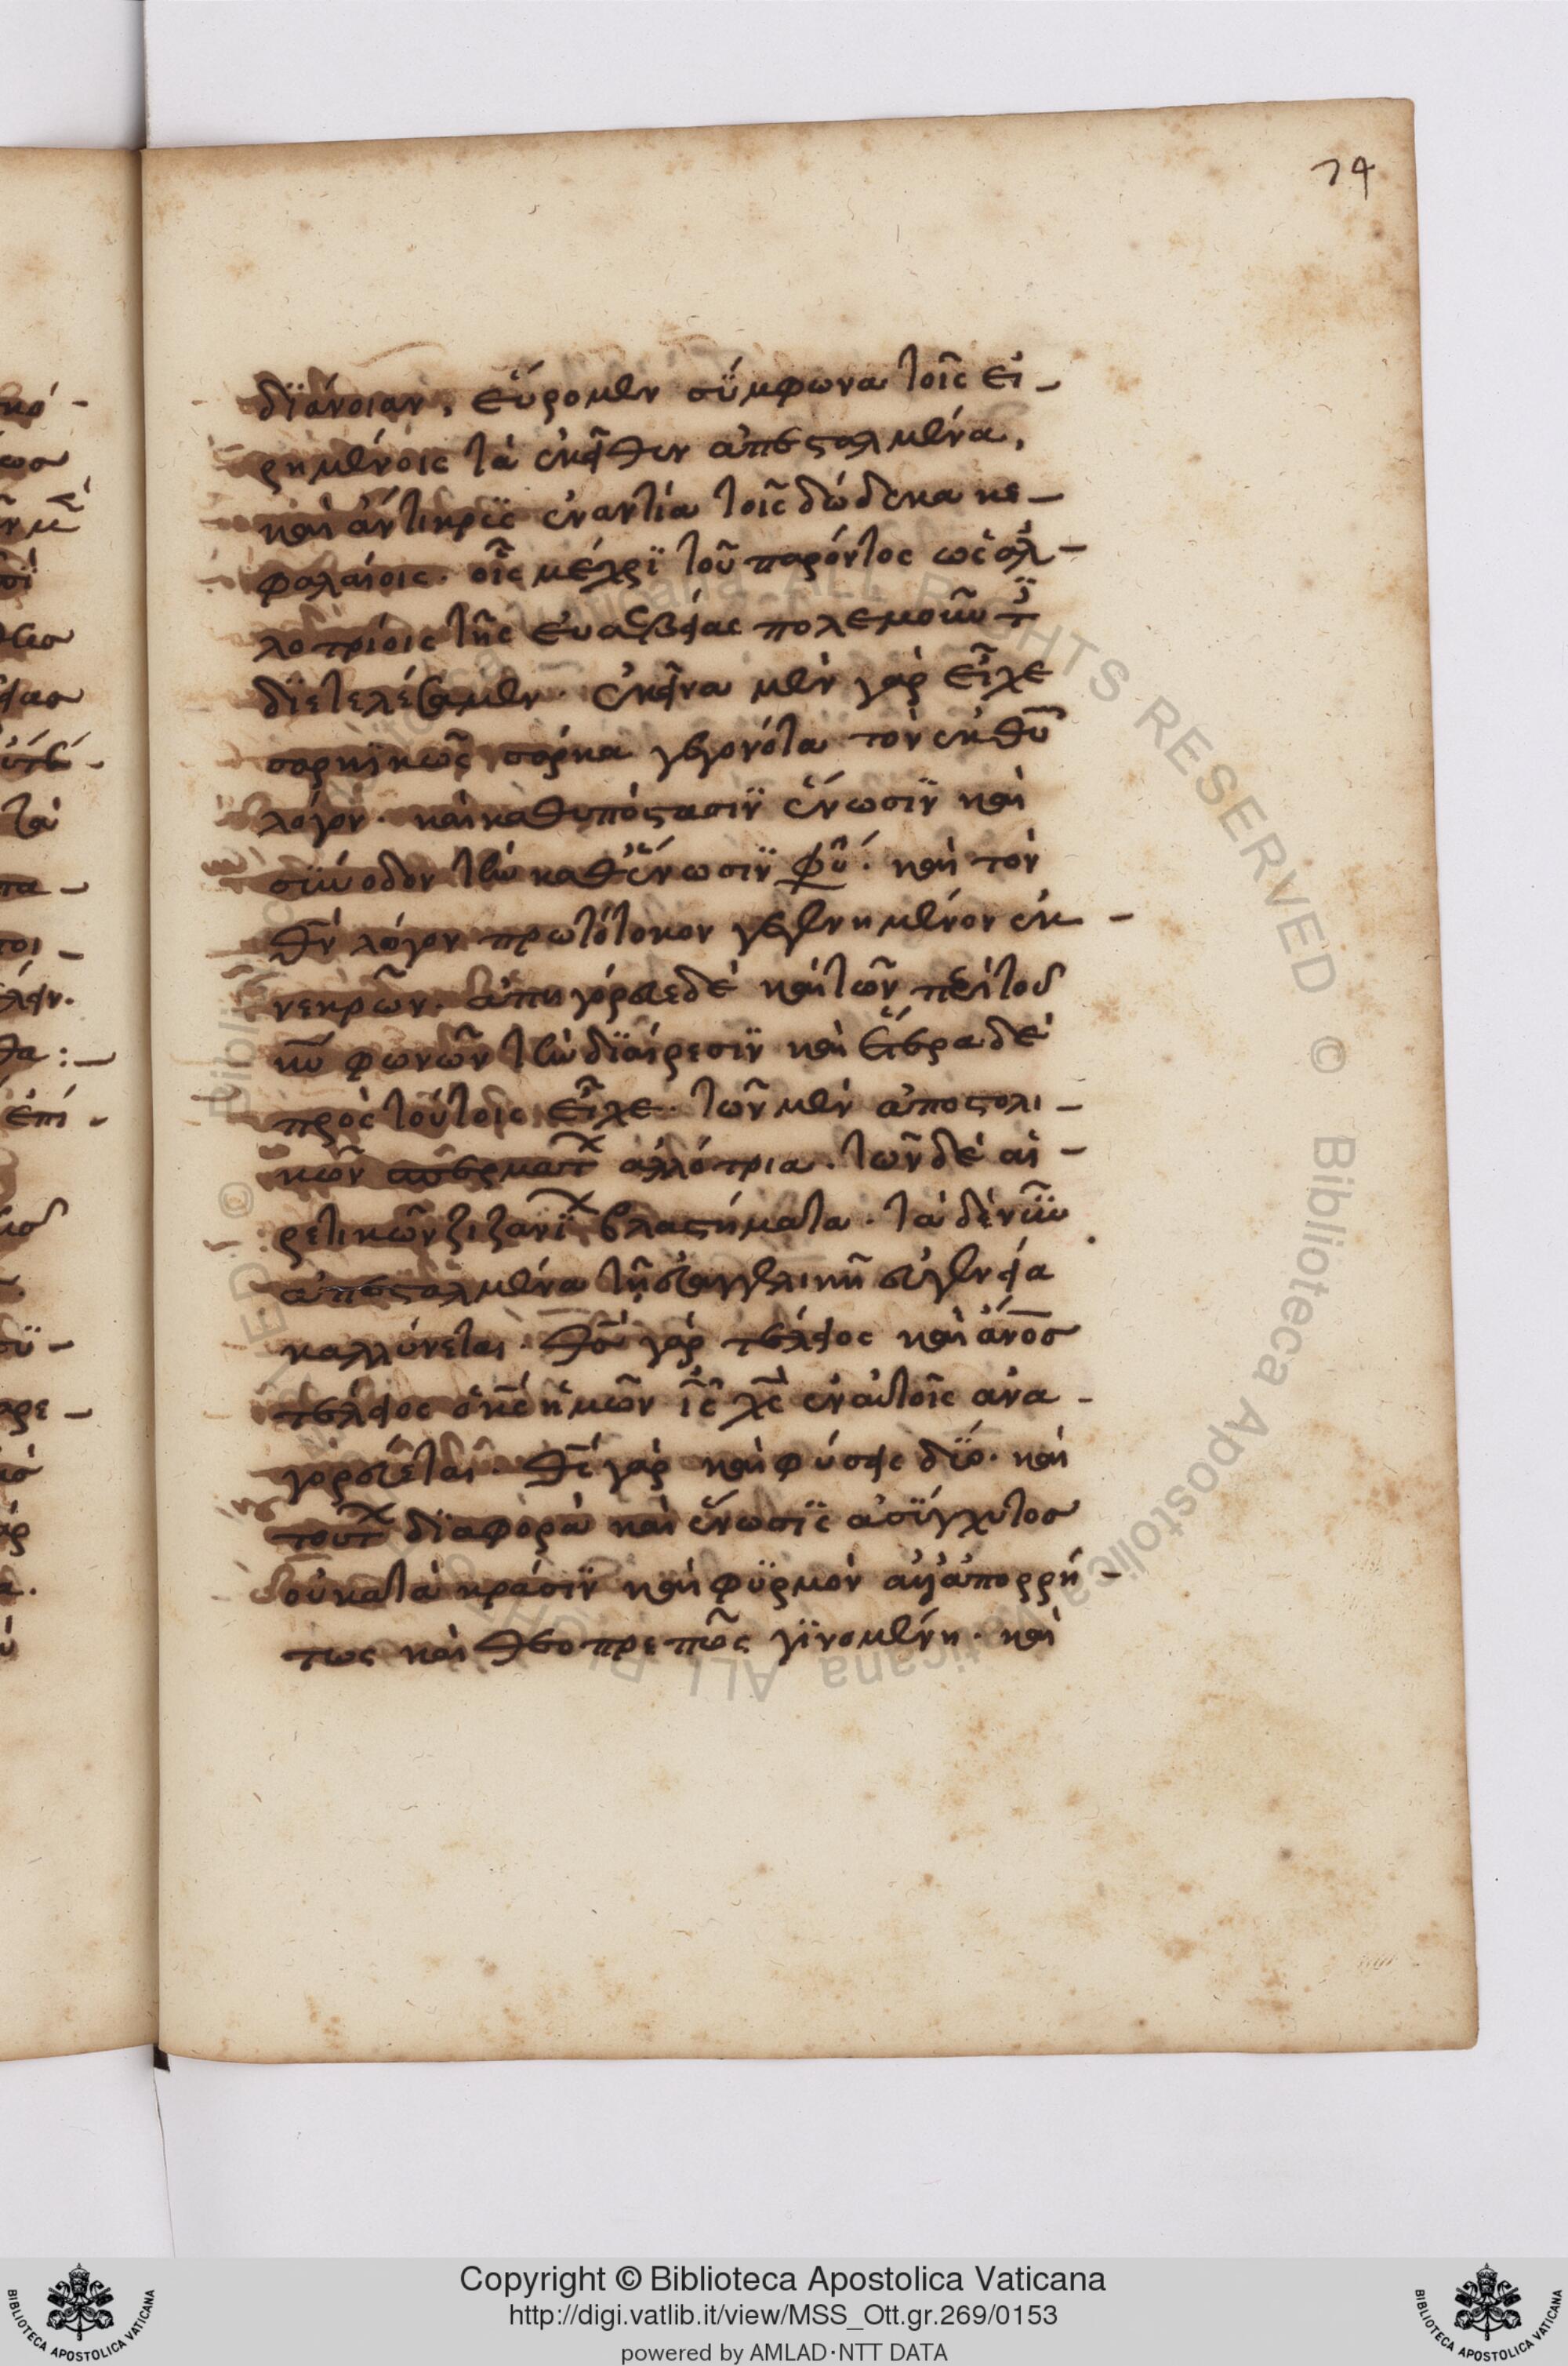 74
διάνοιαν, εὕρομεν σύμφωνα τοῖς εἰ-
ρημένοις τὰ ἐκεῖθεν ἀπεσταλμένα,
καὶ ἄντικρυς ἐναντία τοῖς δώδεκα κε-
φαλαίοις· οἷς μέχρι τοῦ παρόντος ὡς ἀλ-
λοτρίοις τῆς εὐσεβείας πολεμοῦντ
διετελέσαμεν· ἐκεῖνα μὲν γὰρ εἶχε
σαρκικῶς σάρκα γεγονότα τὸν ἐκ θυ
λόγον· καὶ καθυπόστασιν ἕνωσιν καὶ
σύνοδον τὴν καθ' ἕνωσιν φυ· καὶ τὸν
θν λόγον πρωτότοκον γεγενημένον ἐκ -
νεκρῶν· ἀπηγόρευε δὲ καὶ τῶν περὶ τοῦ
κυ φωνῶν τὴν διαίρεσιν καὶ ἕτερα δὲ
πρὸς τούτοις εἶχε· τῶν μὲν ἀποστολι-
κῶν σπερμάτ ἀλλότρια· τῶν δὲ αἱ-
ρετικῶν ζιζανί βλαστήματα· τὰ δὲ νῦν
ἀπεσταλμένα τῇ εὐαγγελικῇ εὐγενεία
καλλύνεται· θσ γὰρ τέλειος καὶ ἄνοσ
τέλειος ὁ κς ἡμῶν ις χς ἐν αὐτοῖς ἀνα-
γορεύεται· θς γὰρ καὶ φύσεις δύο· καὶ
τούτ διαφορὰ καὶ ἕνωσις ἀσύγχυτος
οὐ κατὰ κρᾶσιν καὶ φυρμὸν ἀλλ' ἀπορρή-
τως καὶ θεοπρεπῶς γινομένη· καὶ
Copyright © Biblioteca Apostolica Vaticana
http://digi.vatlib.it/view/MSS_Ott.gr.269/0153
powered by AMLAD·NTT DATA